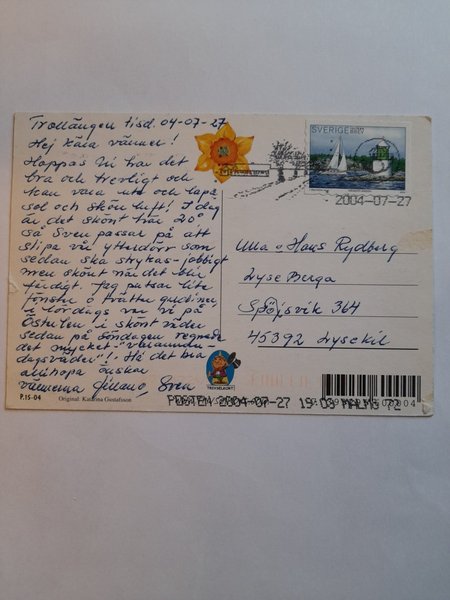 Trollängen tisd. 04-07-27
Hej kära vänner!
Hoppas Ni har det
bra och trevligt och
kan vara ute och lapa
sol och skön luft! I dag
är det skönt här 20°
så Sven passar på att
slipa vår ytterdörr som
sedan ska strykas-jobbigt
men skönt när det blir
färdigt. Jag putsar lite
fönster o tvättar gardiner
i lördags var vi på
i skönt väder
sedan på söndagen regnade
det mycket
Ha det bra
allihopa önskar
vännerna Sven
P.15-04 Original: Katarina Gustafsson
SVERIGE
BREV
2004-07-27
Ulla o Hans Rydberg
Lyse Berga
Spöjsvik 364
45392 Lysekil
TROSSELKORT
POSTEN 2004-07-27 19:03 MALMÖ 72